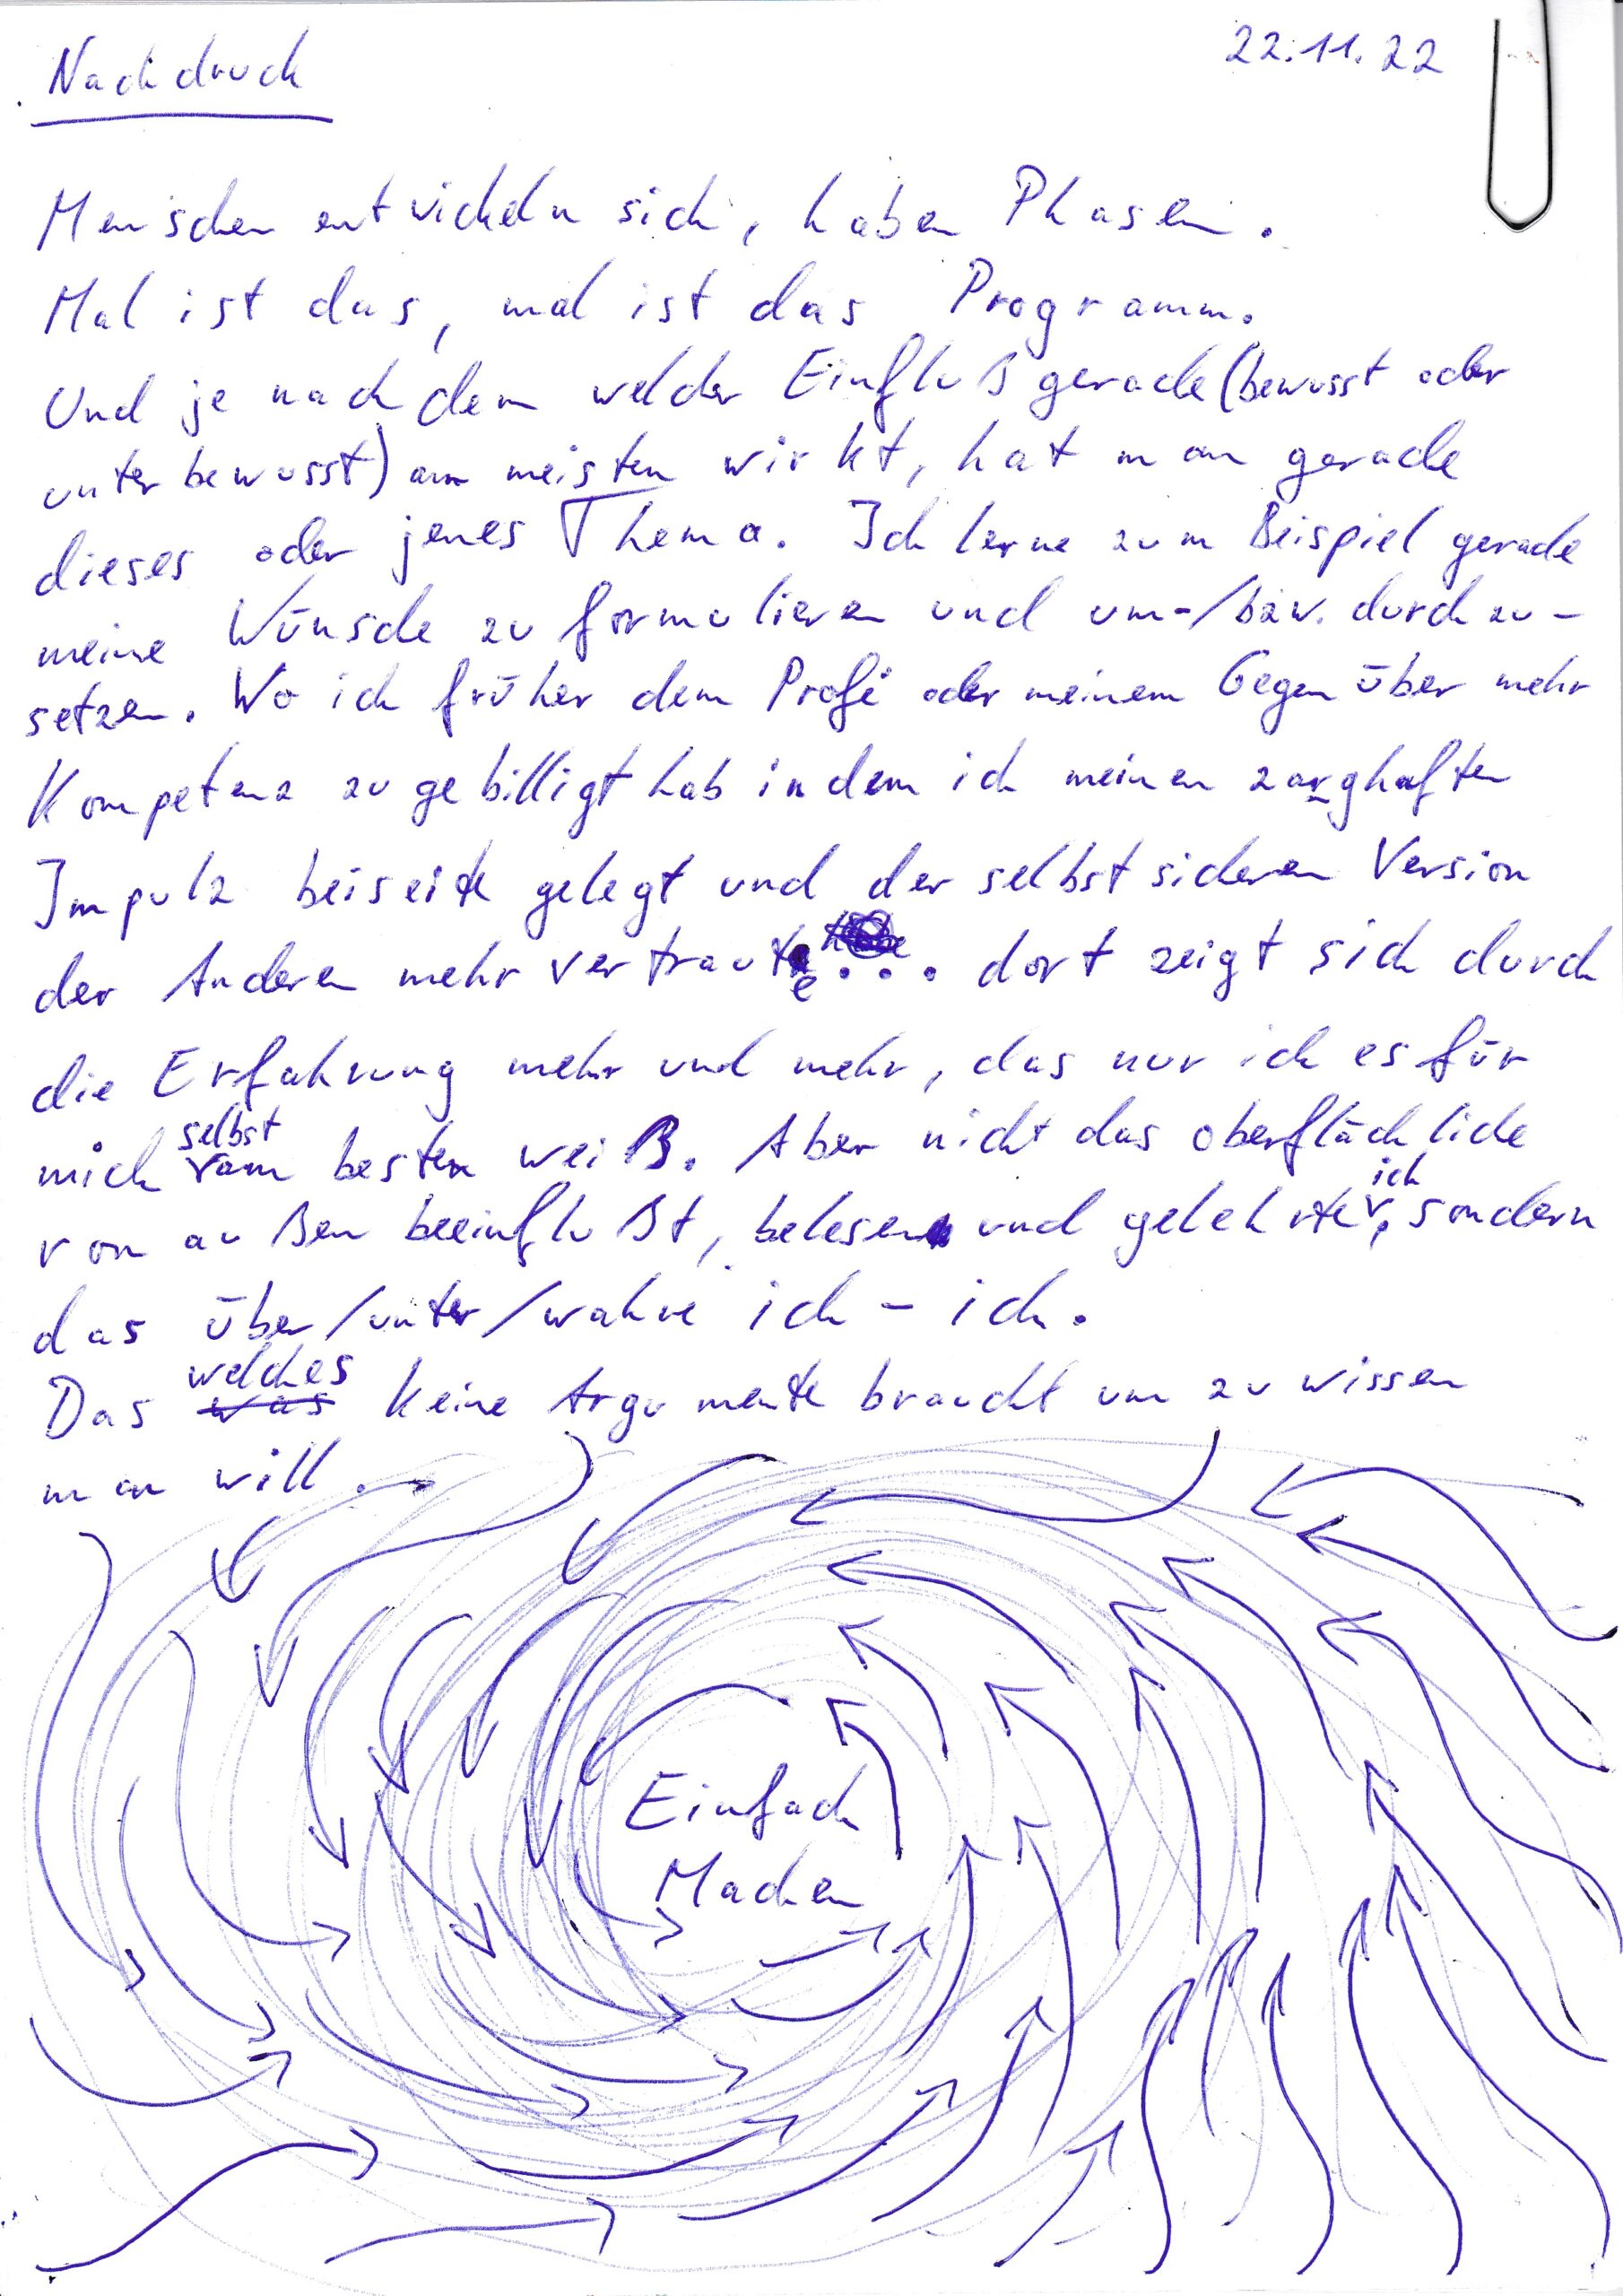 Nachdruck
22.11.22
Menschen entwickeln sich, haben Phasen.
Mal ist das, mal ist das Programm.
Und je nachdem welcher Einfluß gerade (bewusst oder
unterbewusst) am meisten wirkt, hat man gerade
dieses oder jenes Thema. Ich lerne zum Beispiel gerade
meine Wünsche zu formulieren und um-/bzw. durchzu-
setzen. Wo ich früher dem Profi oder meinem Gegenüber mehr
Kompetenz zugebilligt hab indem ich meinen zarghaften
Impulz beiseite gelegt und der selbstsicheren Version
der Anderen mehr vertraute... dort zeigt sich durch
die Erfahrung mehr und mehr, das nur ich es für
mich selbst am besten weiß. Aber nicht das oberflächliche
von außen beeinflußt, belesen und gelehrte ich, sondern
das über/unter/wahre ich - ich.
Das welches keine Argumente braucht um zu wissen
man will.
Einfach
Machen